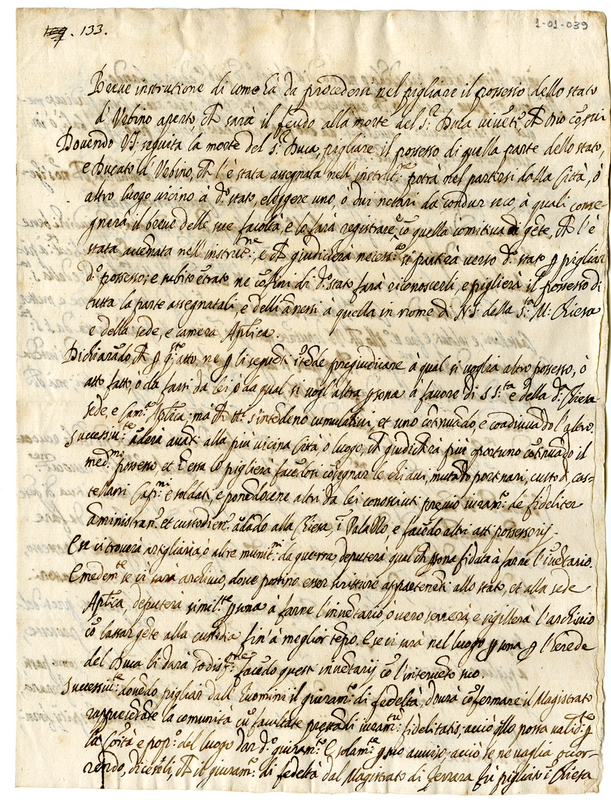 133.
1-01-039
Breve instrutione di come s'ha da procedere nel pigliare il possesso dello stato
d'Urbino aperto, che sarà il feudo alla morte del S.r Duca
Dovendo V.S. seguita la morte del S.r Duca, pigliare il possesso di quella parte dello stato,
e Ducato d'Urbino, che l'è stata assegnata nell'instrutt: potrà nel partirsi dalla Città, ò
altro luogo vicino à d.o stato, eleggere uno, ò dui notari da condur seco, à quali conse-
gnerà il breve delle sue facoltà, e lo farà registrare, cō quella comitiva di gēte, che l'è
stata accennata nell'instrutt.ne, e che giudicherà necess.a si partirà verso d.o stato p pigliar
d.o possesso; e subito ētrato ne cōfini di d.o stato farà riconoscerli, e piglierà il possesso di
tutta la parte assegnatali, e delli annessi à quella in nome di N.S. della S.ta M. Chiesa
e della sede, e camera Aplica.
Dichiarādo, che p q.to atto, ne p li seguēti ītēde pregiudicare à qual si voglia altro possesso, ò
atto fatto, ò da farsi da lei, ò da qual si vogl'altra psona à favore di S. S.tà e della d.a Chiesa
sede, e Cam.a Aplica; ma che tt.i s'intēdano cumulativi, et uno cōtinuādo, e coadiuvādo l'altro.
Successiv.te āderà avāti alla piu vicina Città ò luogo, che giudicherà piu oportuno cōtinuādo il
med.mo possesso, et ī essa lo piglierà facēdosi cōsegnar le chiavi, mutādo portinari, custodi, cas-
tellani Cap.ni e soldati, e ponēdovene altri da lei conosciuti previo iuram.to de fideliter
aministran.o et custodien.o ādādo alla Chiesa, ī Palazzo, e facēdo altri atti possessorij.
E se vi troverà artigliaria, ò altre munit.ni da guerra, deputerà qualche psona fidata à farne l'īvētario.
E medem.te se vi sarà archivio, dove potino esser scritture appartenēti allo stato, et alla sede
Aplica, deputerà simil.te psona à farne l'invētario overo serrerà, e sigillerà l'archivio
cō lassar gēte alla custodia fin'à miglior tēpo. E se vi sarà nel luogo psona p l'herede
del Duca li darà sodisf.ne facēdo questi invētarij cō l'intervēto suo.
Successiv.te dovēdo pigliar dall'huomini il giuram.to di fedeltà, dovrà cōfermare il Magistrato
rappresētāte la comunità cū facultate prestādi iuram.tū fidelitatis, acciò esso possa valid.te p
la Città e pop.o del luogo dar d.o giuram.to E solam.te p suo avviso, acciò se ne vaglia occor-
rendo, diceseli, che il giuram.to di fedeltà dal Magistrato di Ferrara fù pigliato ī Chiesa